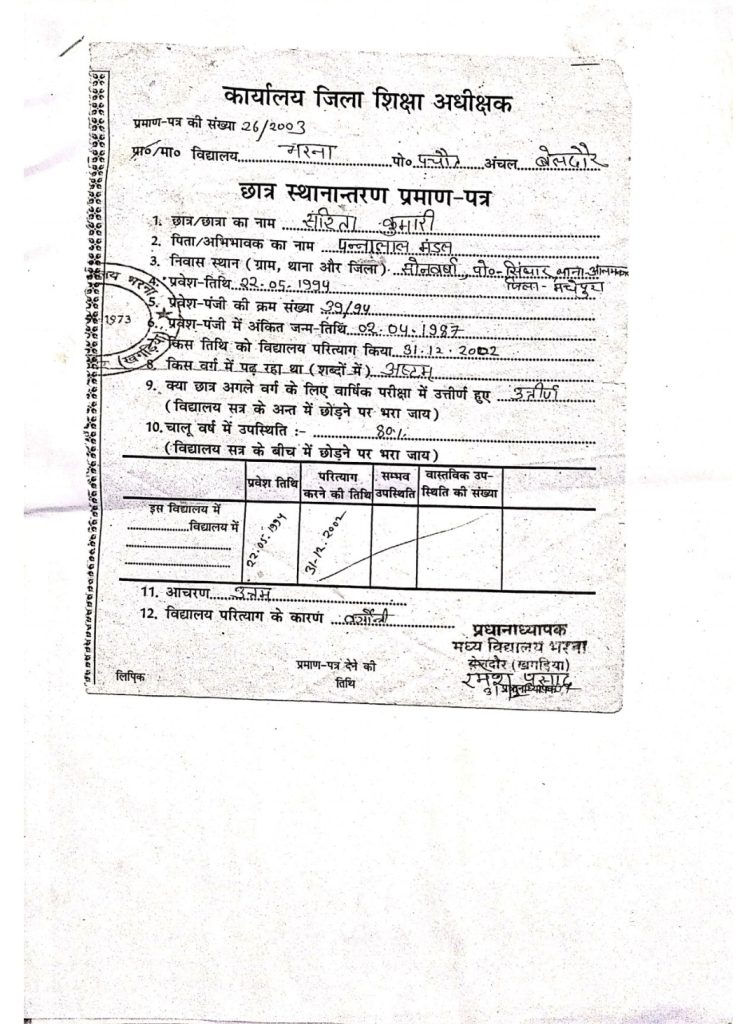 कार्यालय जिला शिक्षा अधीक्षक
प्रमाण-पत्र की संख्या 26/2003
प्रा०/मा० विद्यालय भरना पो० पचौत अंचल बेलदौर
छात्र स्थानान्तरण प्रमाण-पत्र
1. छात्र/छात्रा का नाम सरिता कुमारी
2. पिता/अभिभावक का नाम पन्नालाल मंडल
3. निवास स्थान (ग्राम, थाना और जिला) सोनवर्षा, पो०-सिंघार थाना-
जिला-
4. प्रवेश-तिथि 22.05.1994
5. प्रवेश-पंजी की क्रम संख्या 39/94
6. प्रवेश-पंजी में अंकित जन्म-तिथि 02.04.1987
7. किस तिथि को विद्यालय परित्याग किया 31.12.2002
8. किस वर्ग में पढ़ रहा था (शब्दों में) अष्टम
9. क्या छात्र अगले वर्ग के लिए वार्षिक परीक्षा में उत्तीर्ण हुए उत्तीर्ण
(विद्यालय सत्र के अन्त में छोड़ने पर भरा जाय)
10. चालू वर्ष में उपस्थिति :- 80%
(विद्यालय सत्र के बीच में छोड़ने पर भरा जाय)
प्रवेश तिथि परित्याग करने की तिथि सम्भव उपस्थिति वास्तविक उप-स्थिति की संख्या
इस विद्यालय में 22.05.1994 31-12-2002
विद्यालय में
11. आचरण उत्तम
12. विद्यालय परित्याग के कारण
प्रधानाध्यापक
मध्य विद्यालय भरना
बेलदौर (खगड़िया)
लिपिक
प्रमाण-पत्र देने की
तिथि
रमेश प्रसाद
प्रधानाध्यापक
1973
(खगड़िया)